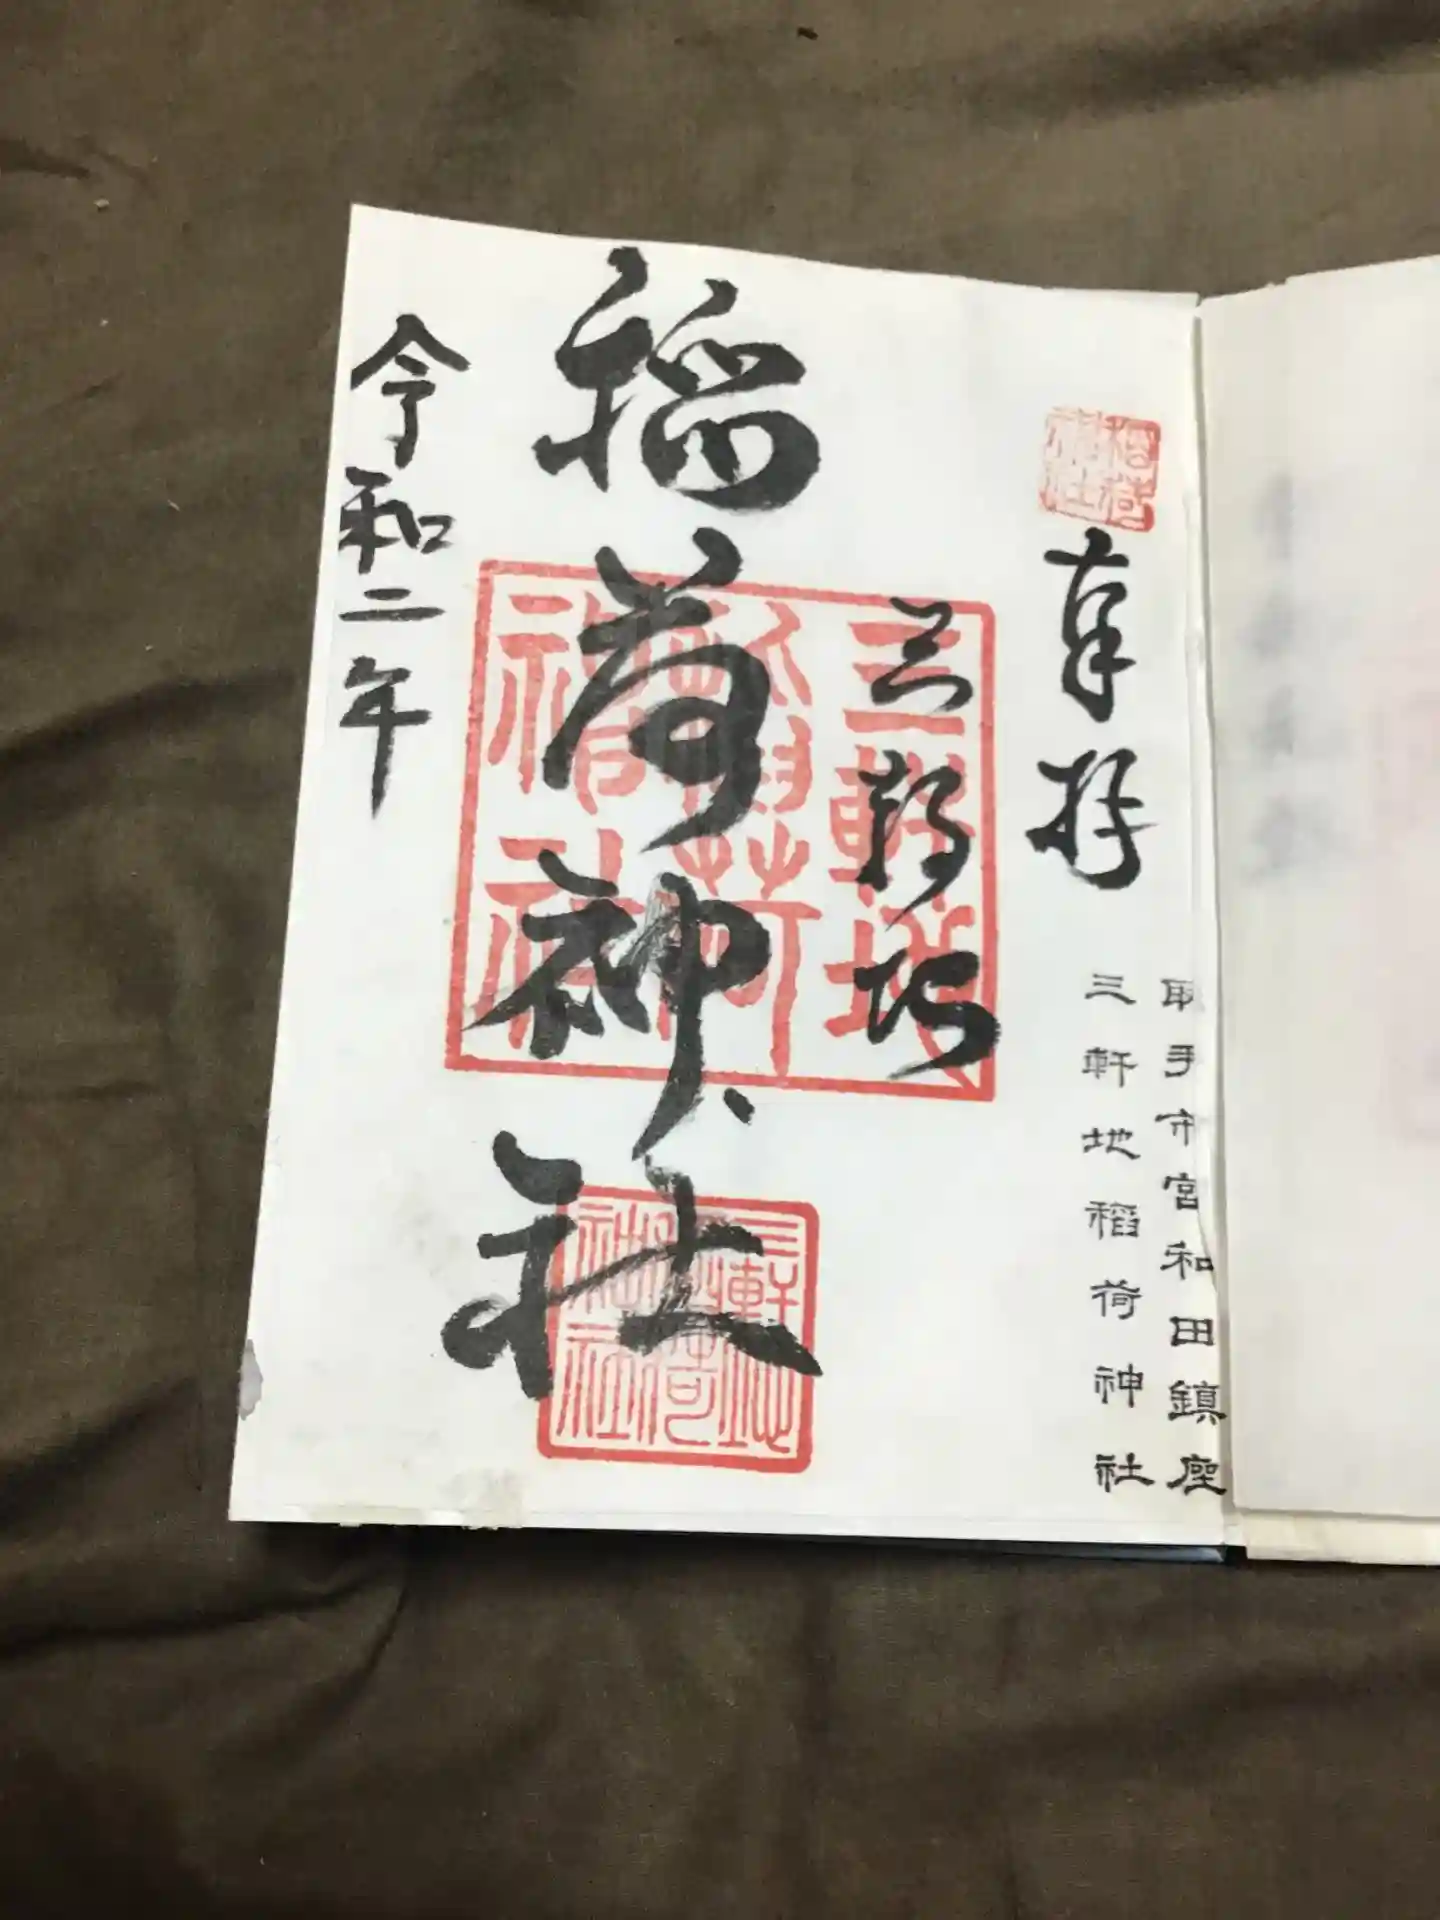 奉拝
取手市宮和田鎮座
三軒地稲荷神社
稲荷神社
三軒地
三軒地稲荷神社
稲荷神社
三軒地稲荷神社
令和二年